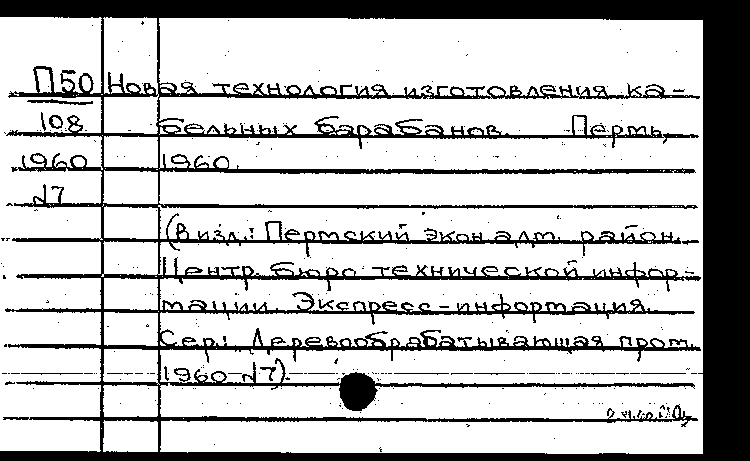 П50 Новая технология изготовления ка-
108 бельных барабанов. Пермь,
1960 1960.
№7
(В изд.: Пермский экон.адм. район.
Центр. бюро технической инфор-
мации. Экспресс-информация.
Сер.: Деревообрабатывающая пром.
1960 №7).